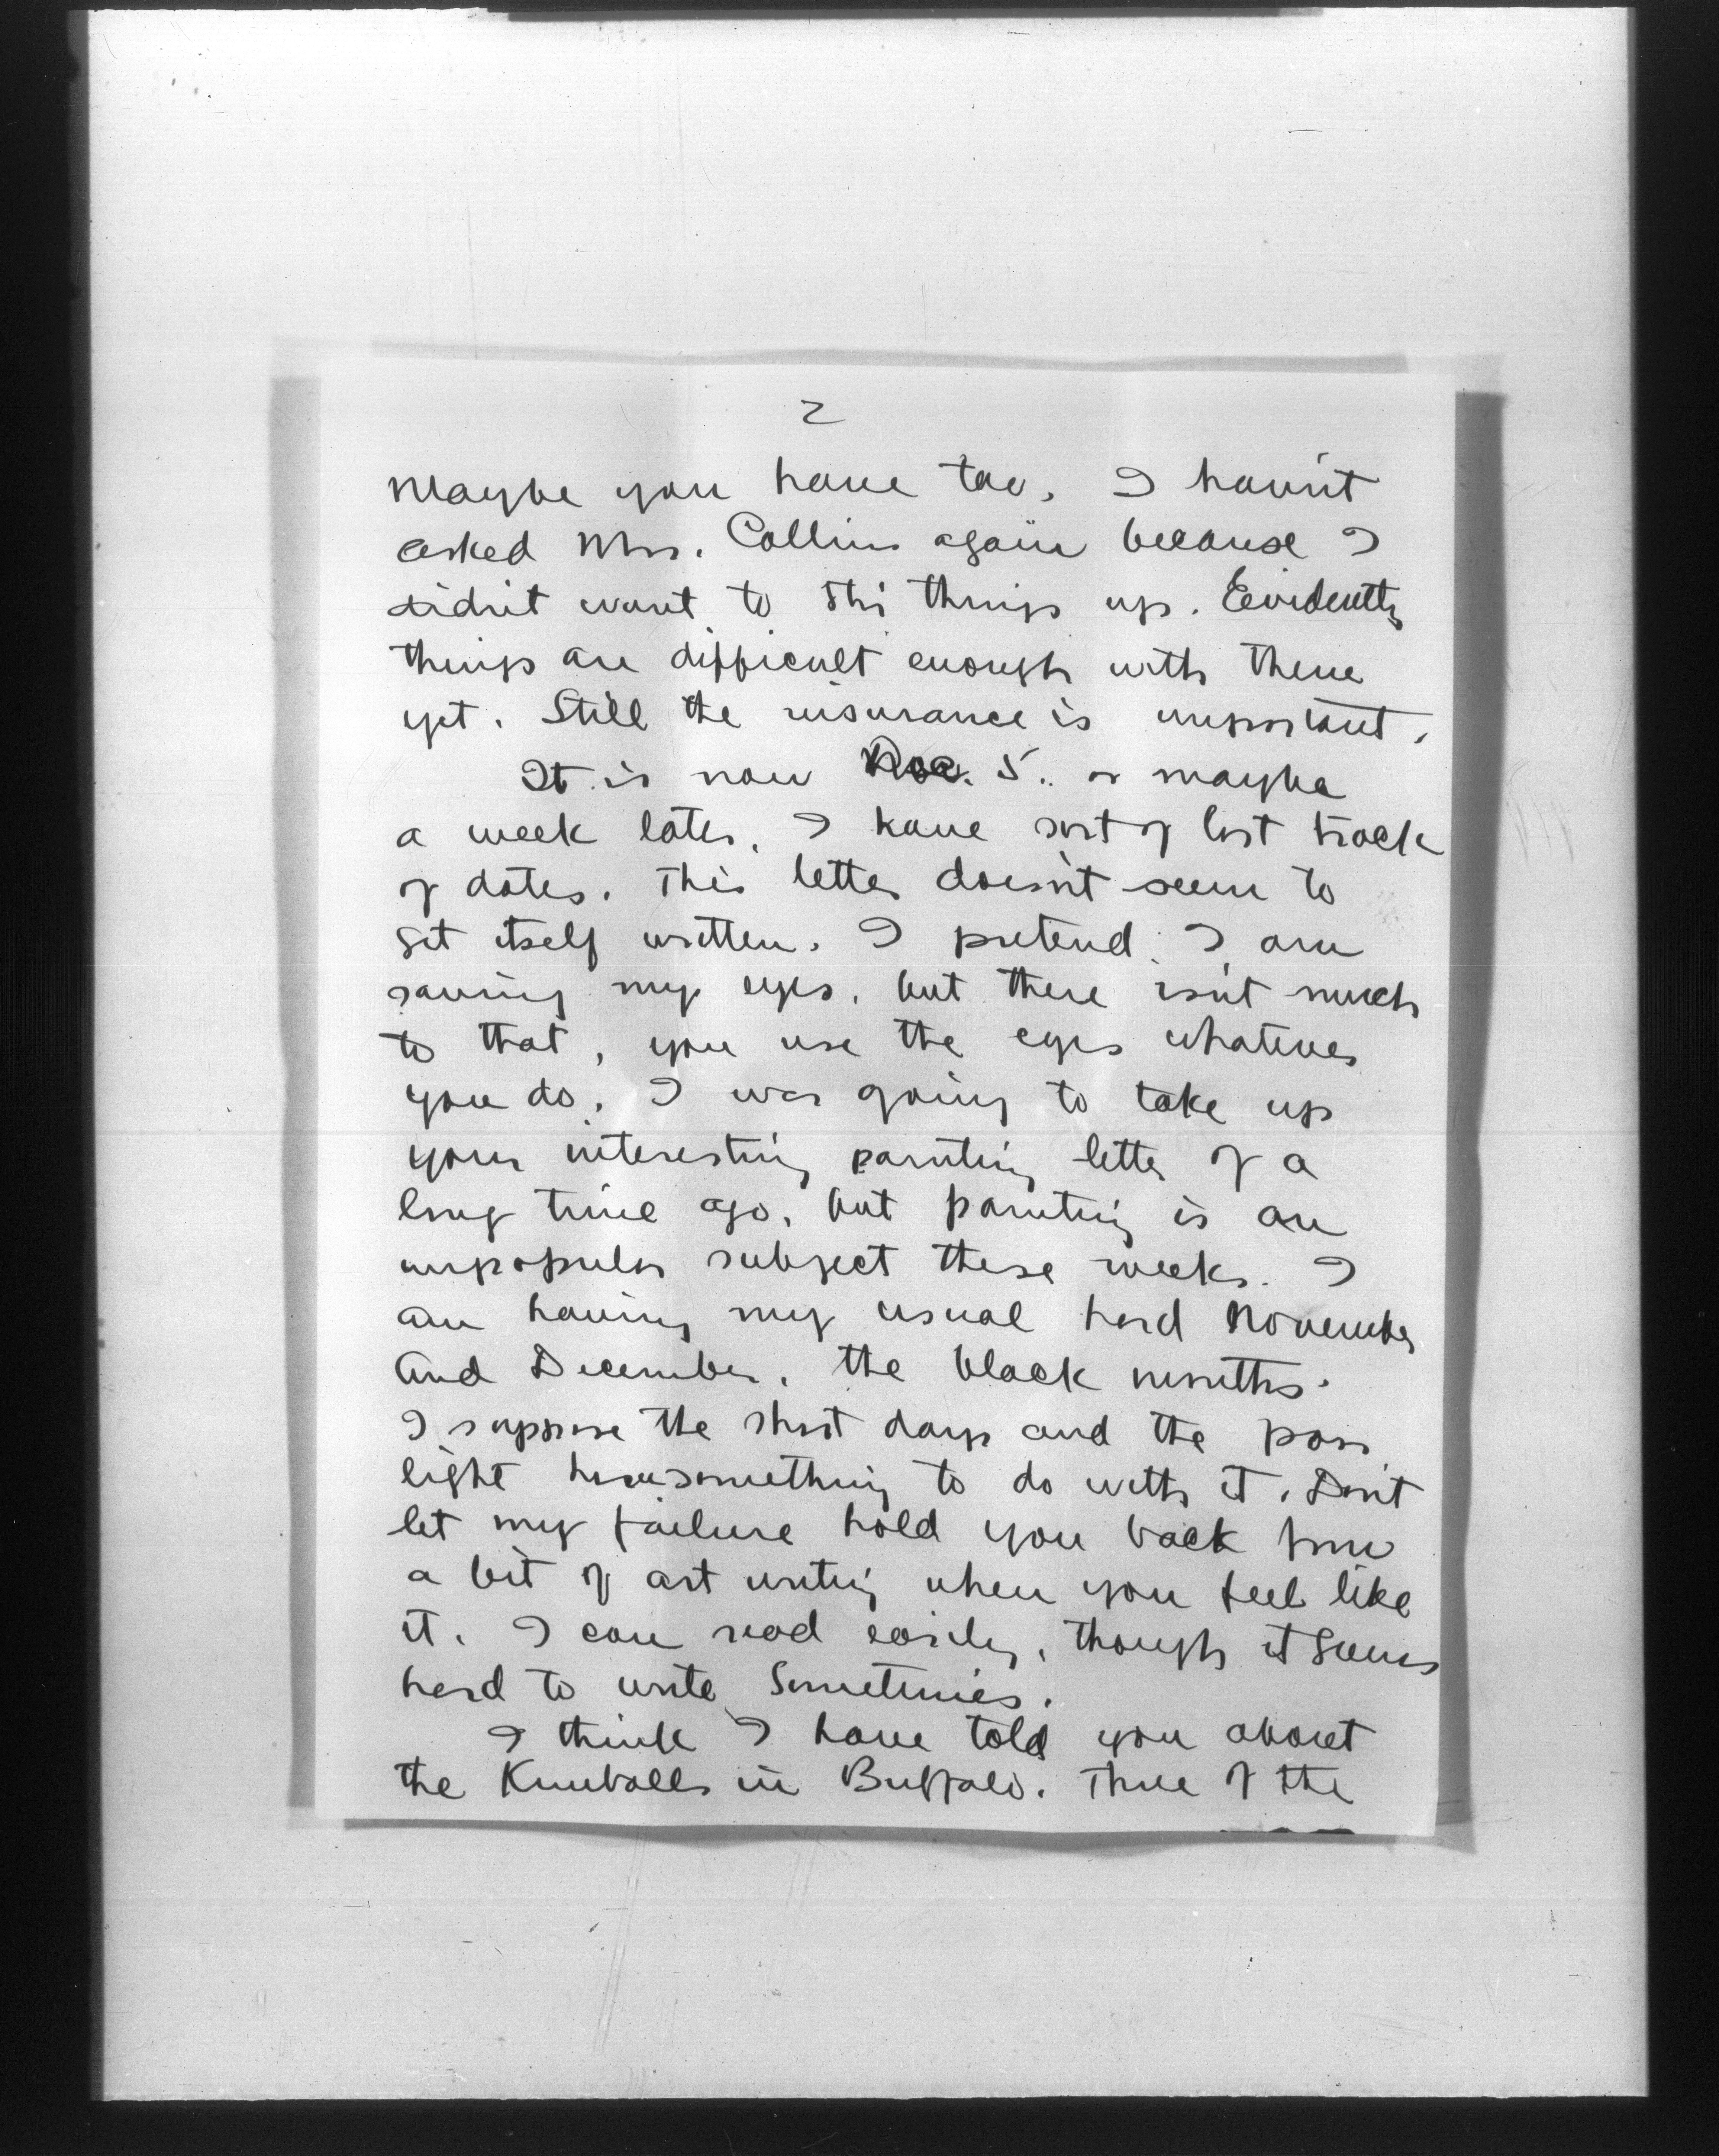 2
Maybe you have too. I haven't
asked Mrs. Collins again because I
didn't want to stir things up. Evidently
things are difficult enough with them
yet. Still the insurance is important.
It is now Dec. 5. or maybe
a week later. I have sort of lost track
of dates. This letter doesn't seem to
get itself written. I pretend I am
saving my eyes, but there isn't much
to that, you use the eyes whatever
you do. I was going to take up
your interesting painting letter of a
long time ago, but painting is an
unpopular subject these weeks. I
am having my usual hard November
and December, the black months.
I suppose the short days and the poor
light have something to do with it. Don't
let my failure hold you back from
a bit of art writing when you feel like
it. I can read easily, though it seems
hard to write sometimes.
I think I have told you about
the Kimballs in Buffalo. Three of the